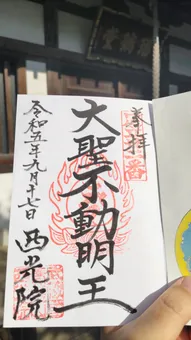 奉拝
大聖不動明王
西光院
令和五年九月十七日